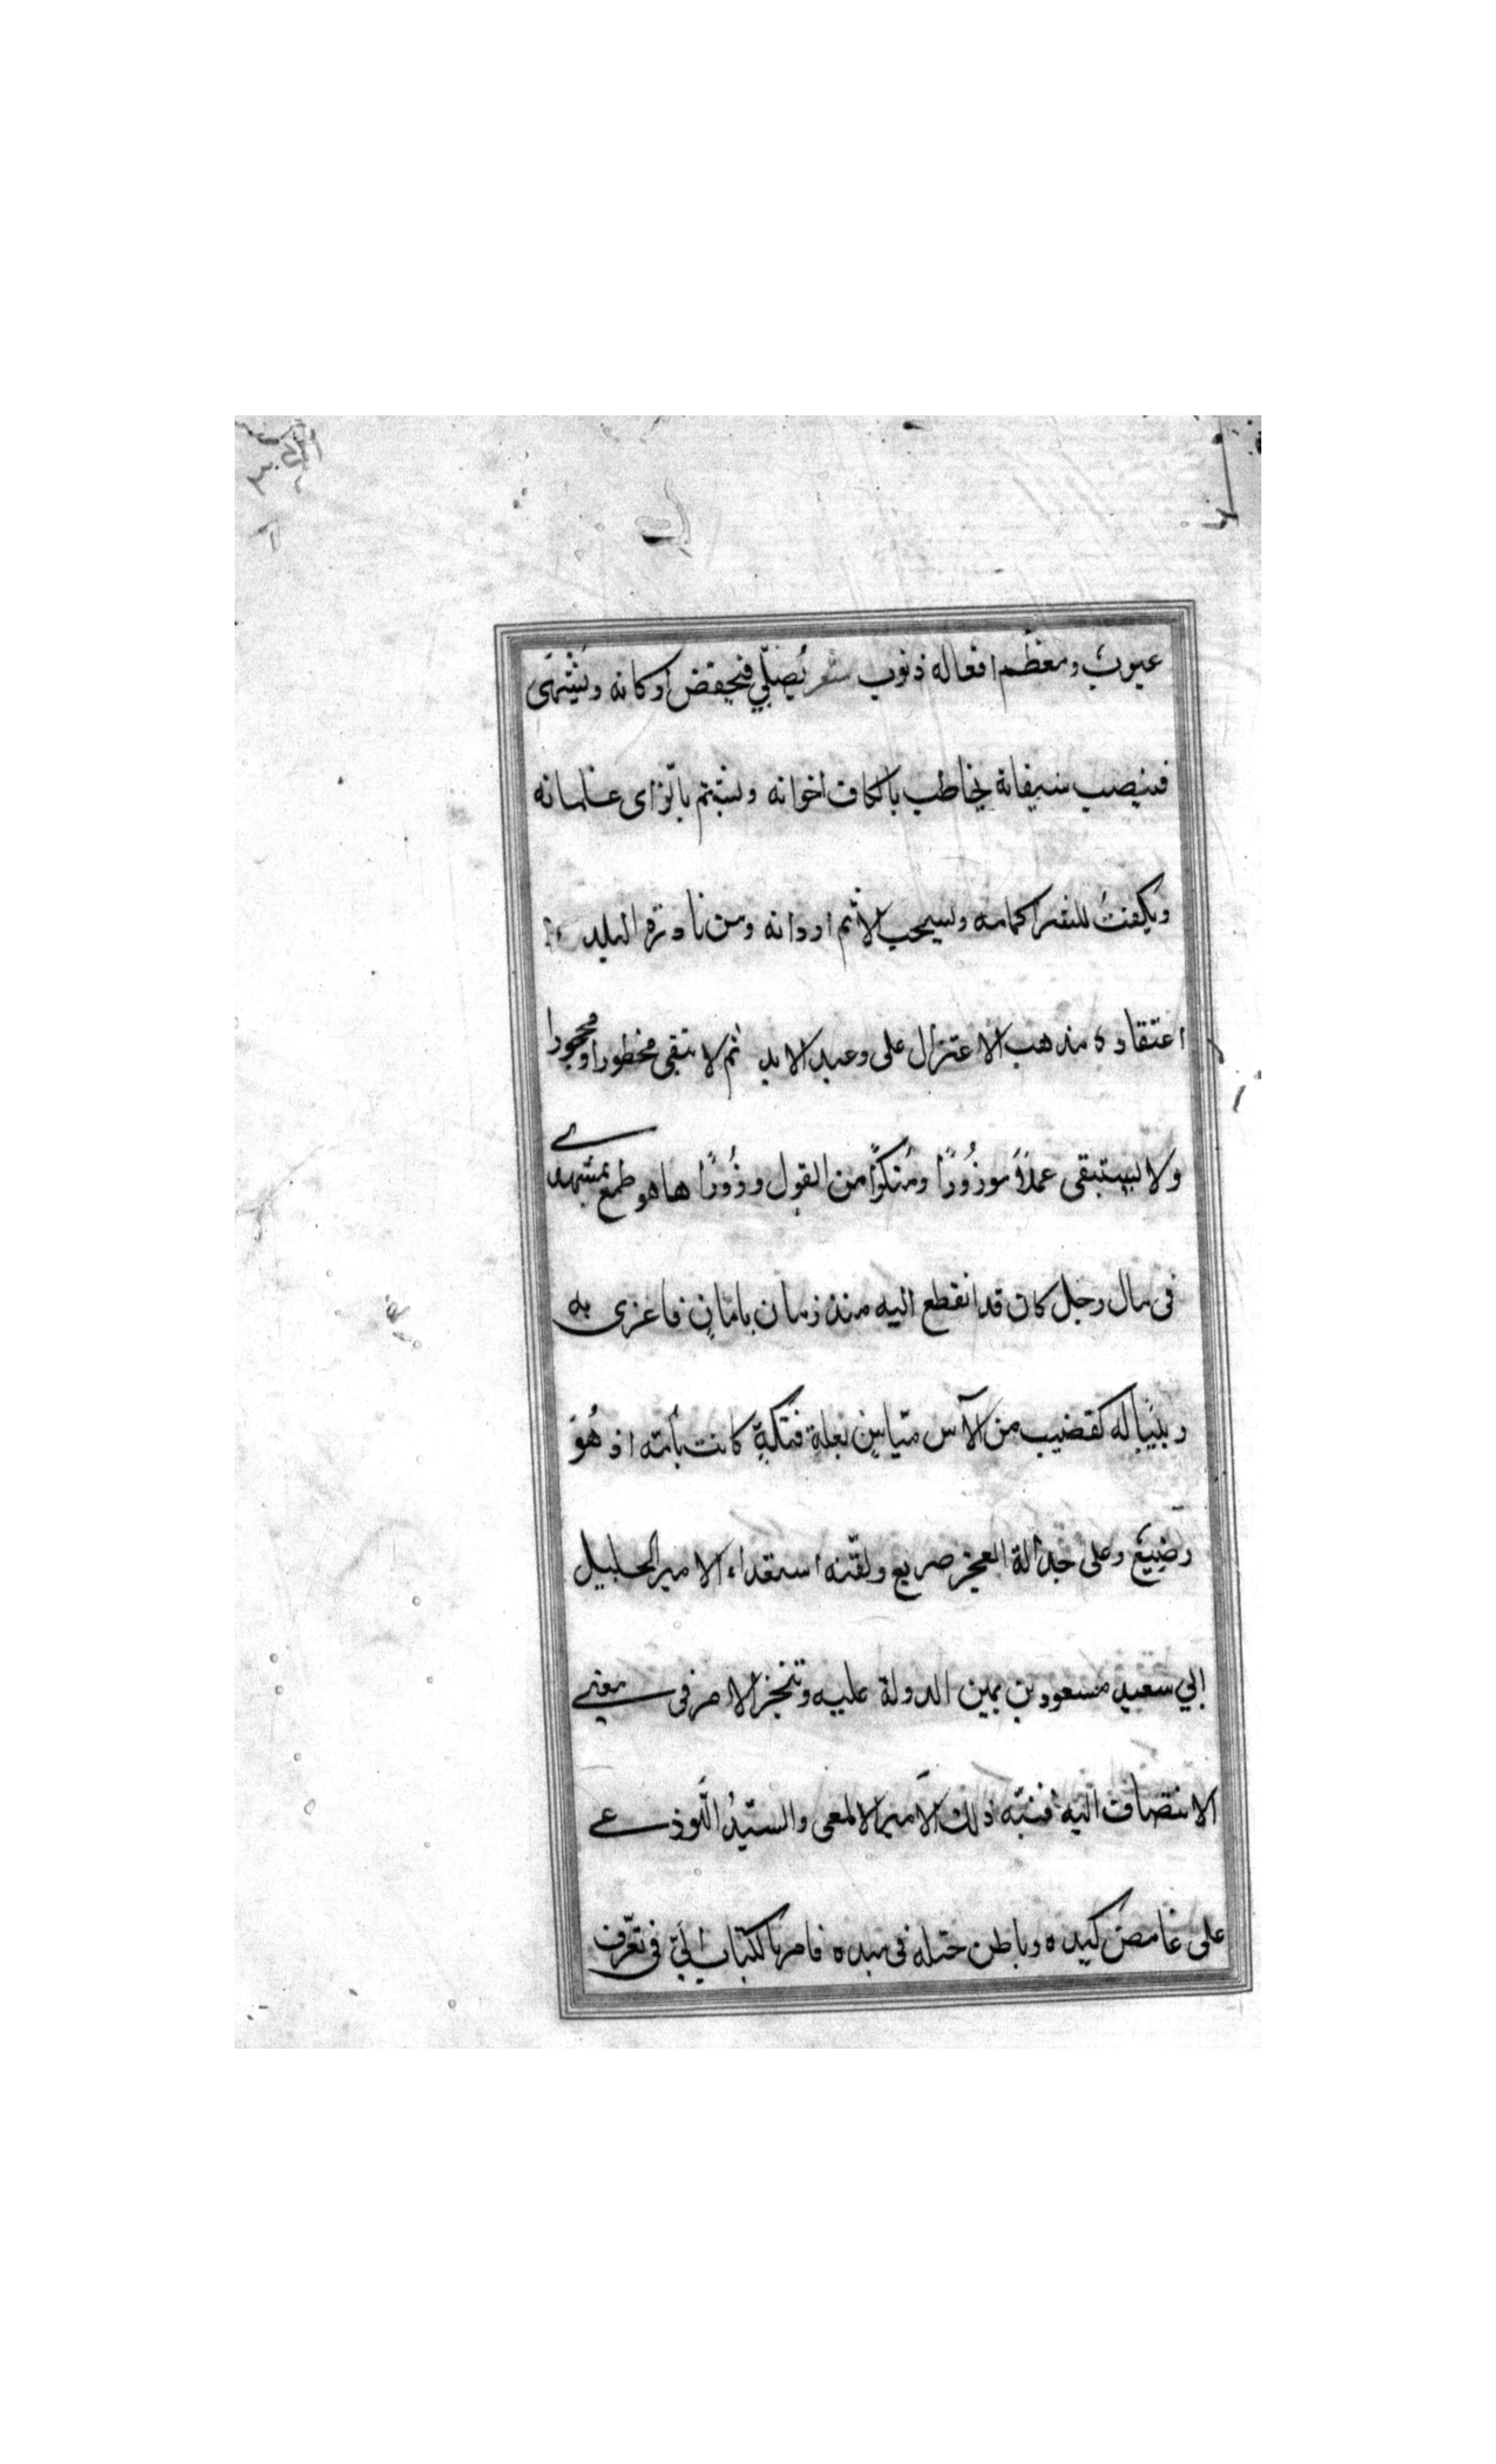 عيوبٌ ومعظم افعاله ذنوب ثم يُصلّي فيحفض اركانه ويشتهى
فينصب سيفانه يخاطب بالكاف اخوانه ويشتم بالزاى غلمانه
ويكفتُ للنقر اكمامه ويسحب الاثم اردانه ومن نادرة البليد
اعتقاده مذهب الاعتزال على وعيد الابد ثم لا يتقى محظورا ومحجورا
ولا يستبقى عملاً موزُورًا ومنكرًا من القول وزُورًا ها هو طمع بمشهدى
فى مال رجل كان قد انقطع اليه منذ زمان بامان فاغرى به
ربيبا له كقضيب من الآس ميّاس بعلة فتكةٍ كانت بأمه اذ هُو
رضيع وعلى جدالة العجز صريع ولقّنه استعداء الامير الجليل
ابي سعيد مسعود بن يمين الدولة عليه وتنجز الامر فى معنى
الانتصاف اليه فنبّه ذلك الامير الالمعى والسيّدُ اللّوذعى
على غامض كيده وباطن ختله فى صيده فامر بالكتاب اليّ فى تعرّف